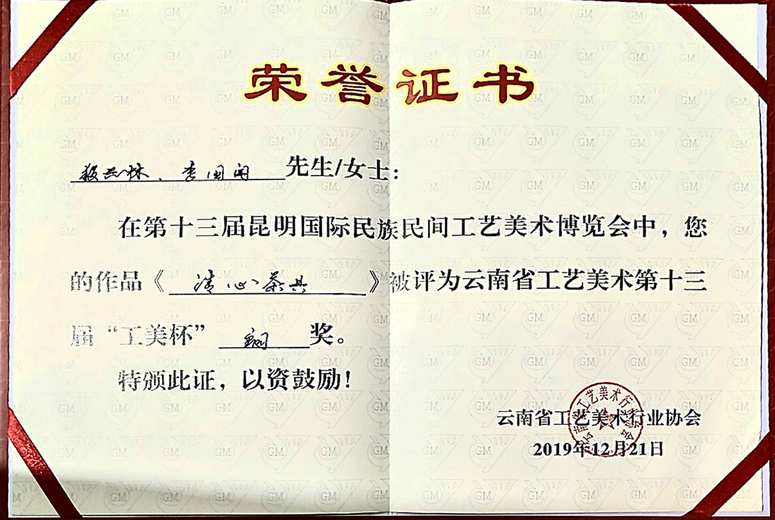 荣誉证书
李国闯 先生/女士:
在第十三届昆明国际民族民间工艺美术博览会中,您
的作品《清心茶具》被评为云南省工艺美术第十三
届“工美杯” 铜 奖。
特颁此证,以资鼓励!
云南省工艺美术行业协会
2019年12月21日